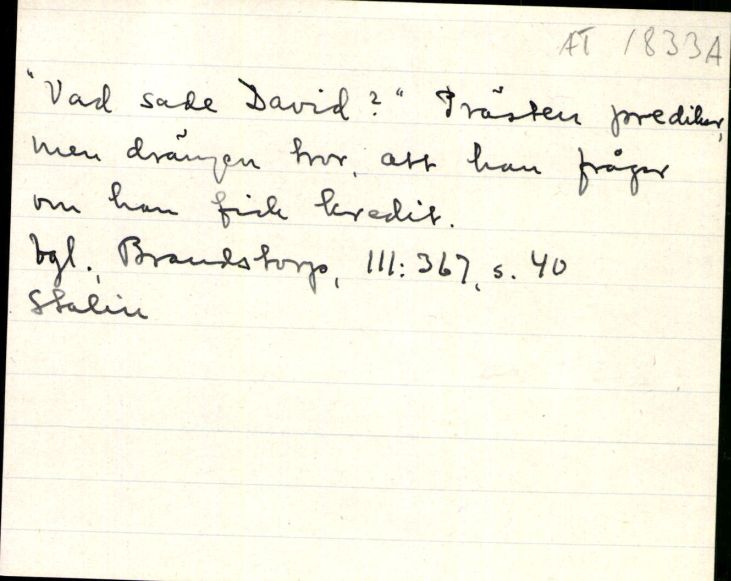 AT 1833A
"Vad sade David?" Prästen predikar,
men drängen tror, att han frågar
om han fick kredit.
Vgl., Brandstorp, III: 367, s. 40
Stalin